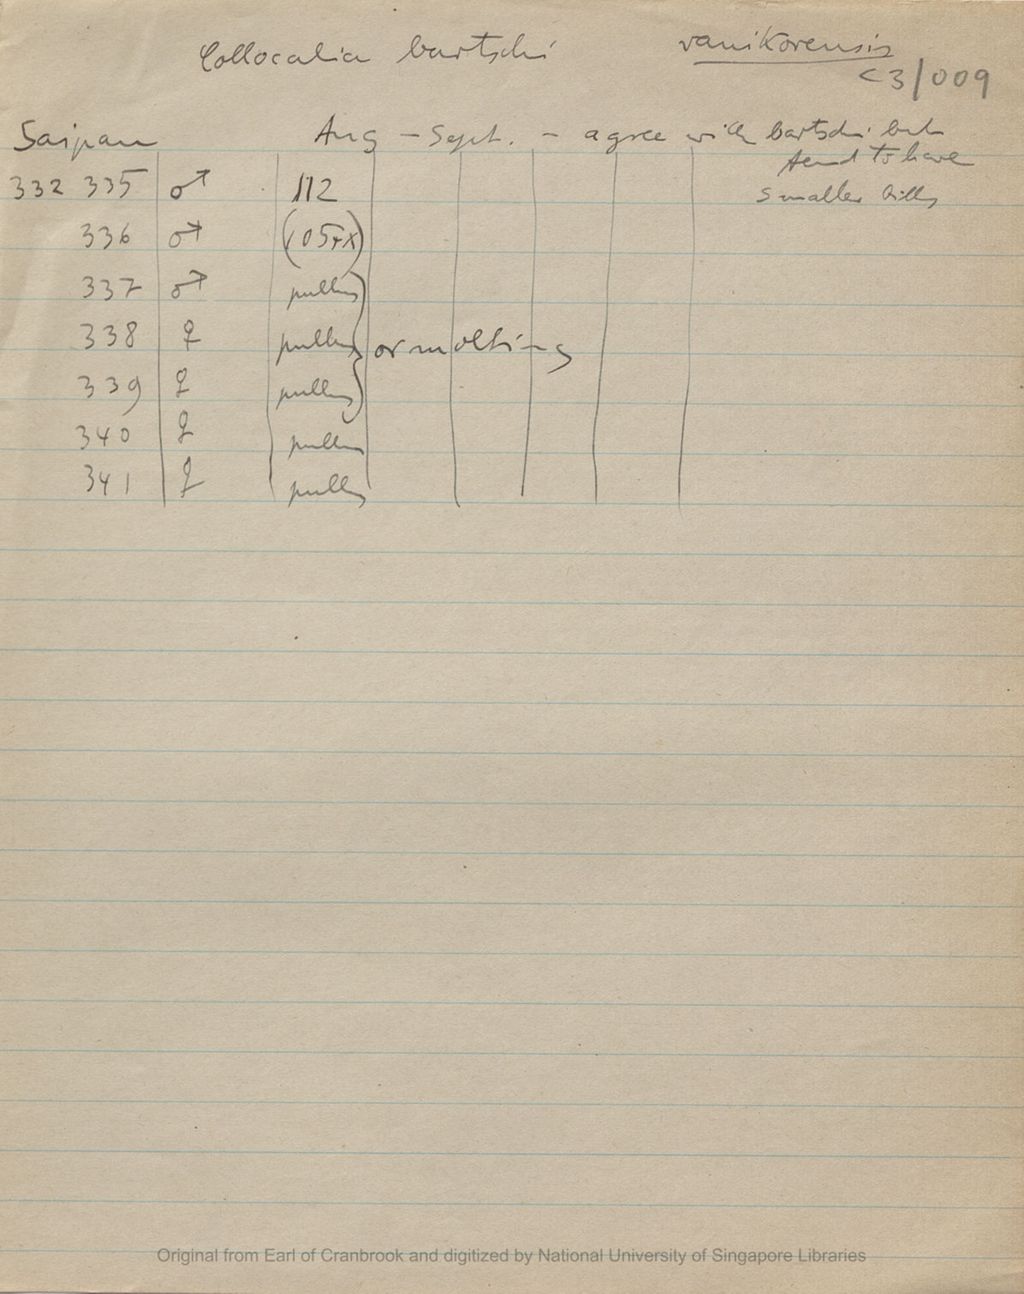 Collocalia bartschi vanikorensis
C3/009
Saipan Aug - Sept. - agree with bartschi but
tend to have
smaller bills
332 335 ♂ 112
336 ♂ (105+x)
337 ♂ pullus
338 ♀ pullus } or molting
339 ♀ pullus
340 ♀ pullus
341 ♀ pullus
Original from Earl of Cranbrook and digitized by National University of Singapore Libraries